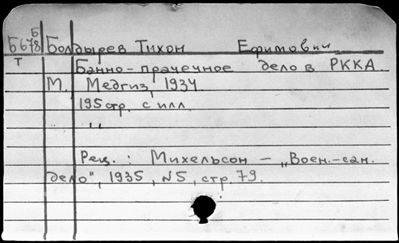 Б
Б678 Болдырев Тихон Ефимович
Т Банно-прачечное дело в РККА.
М. Медгиз, 1934
195 стр. с илл.
" "
Рец.: Михельсон – „Воен.-сан.
дело", 1935, N5, стр. 79.